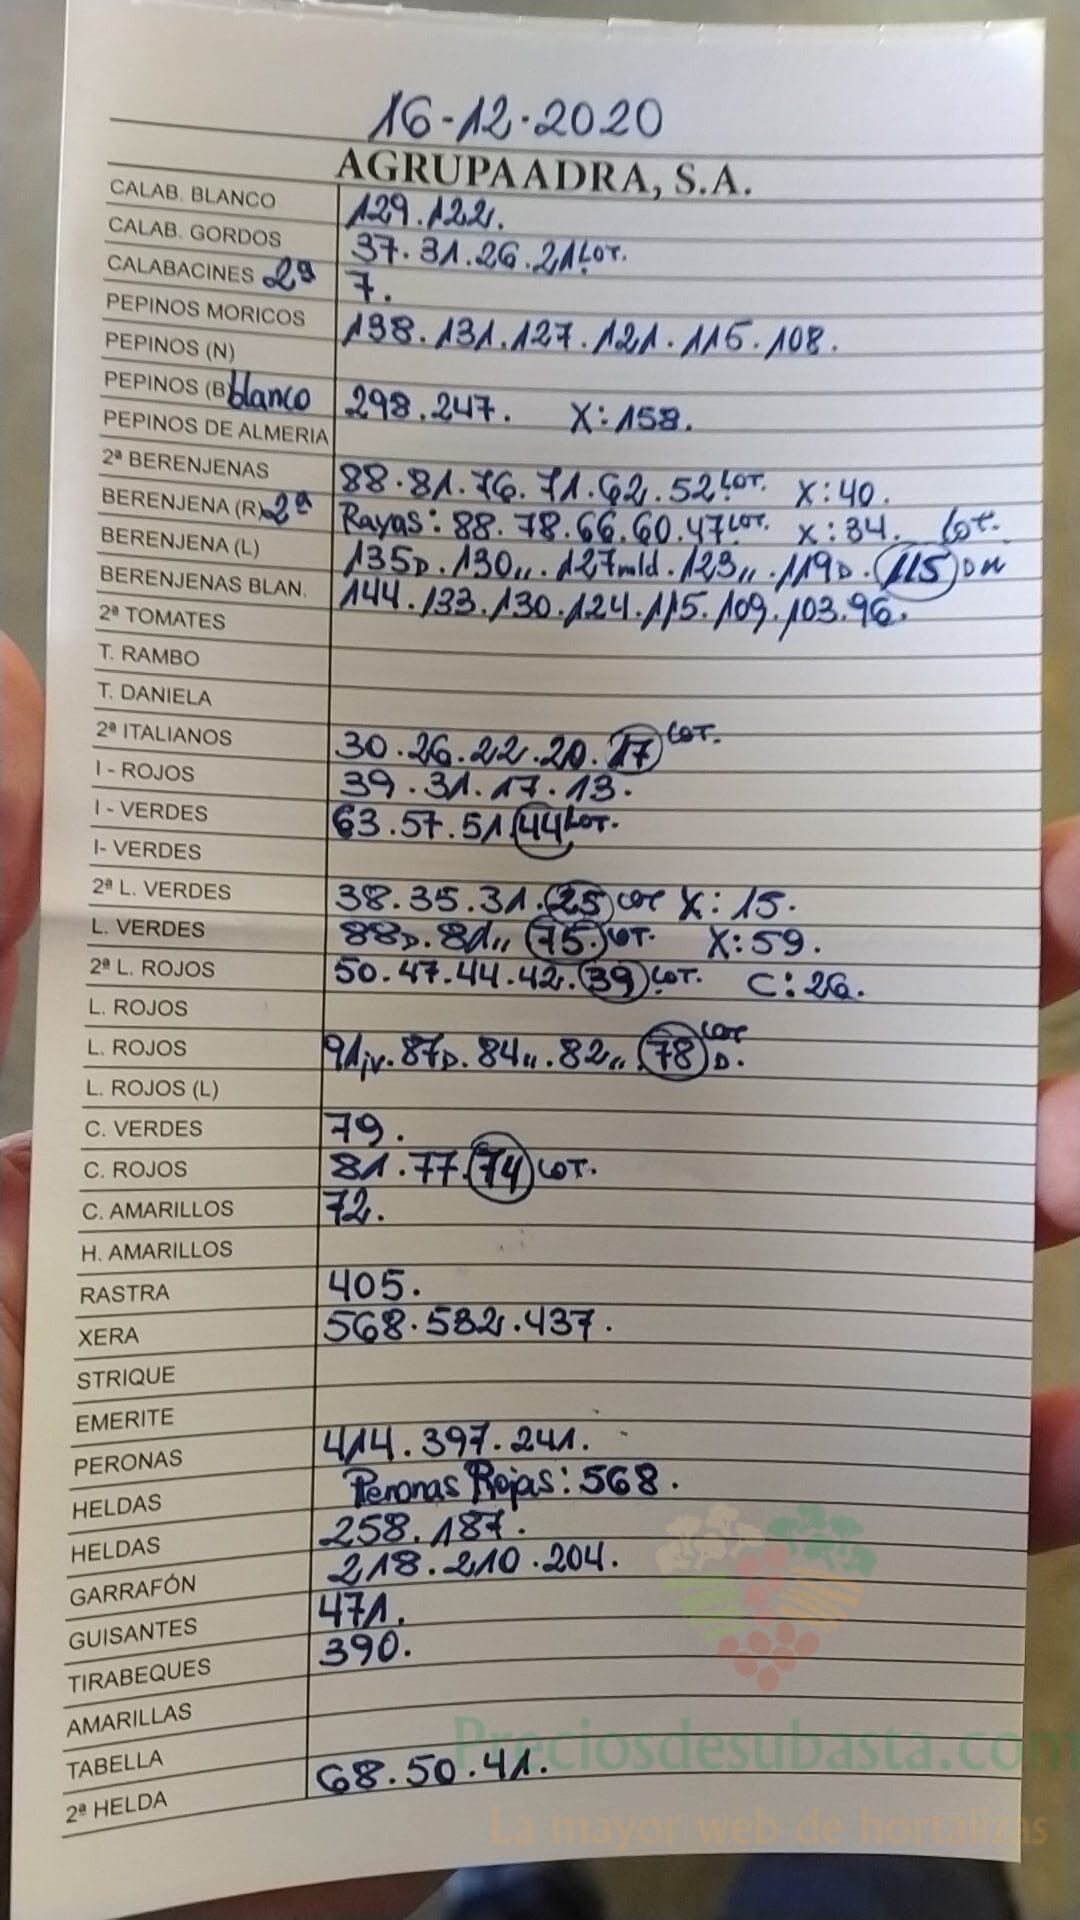 16-12-2020
AGRUPAADRA, S.A.
CALAB. BLANCO 129.122.
CALAB. GORDOS 37.31.26.21 LOT.
CALABACINES 2ª 7.
PEPINOS MORICOS 138.131.127.121.115.108.
PEPINOS (N)
PEPINOS (B blanco 298.247. X:158.
PEPINOS DE ALMERIA
2ª BERENJENAS 88.81.76.71.62.52 LOT. X:40.
BERENJENA (R) 2ª Rayas: 88.78.66.60.47 LOT. X:34. LOT.
BERENJENA (L) 135D.130,,.127mld.123,,.119D.115 DM
BERENJENAS BLAN. 144.133.130.124.115.109.103.96.
2ª TOMATES
T. RAMBO
T. DANIELA
2ª ITALIANOS 30.26.22.20.17 LOT.
I - ROJOS 39.31.17.13.
I - VERDES 63.57.51.44 LOT.
I- VERDES
2ª L. VERDES 38.35.31.25 LOT X:15.
L. VERDES 88D.81,,.75. LOT. X:59.
2ª L. ROJOS 50.47.44.42.39 LOT. C:26.
L. ROJOS
L. ROJOS 91jv.87D.84,,.82,,.78 LOT D.
L. ROJOS (L)
C. VERDES 79.
C. ROJOS 81.77.74 LOT.
C. AMARILLOS 72.
H. AMARILLOS
RASTRA 405.
XERA 568.532.437.
STRIQUE
EMERITE
PERONAS 414.397.241.
HELDAS Peronas Rojas: 568.
HELDAS 258.187.
GARRAFÓN 218.210.204.
GUISANTES 471.
TIRABEQUES 390.
AMARILLAS
TABELLA
2ª HELDA 68.50.41.
Preciosdesubasta.com
La mayor web de hortalizas